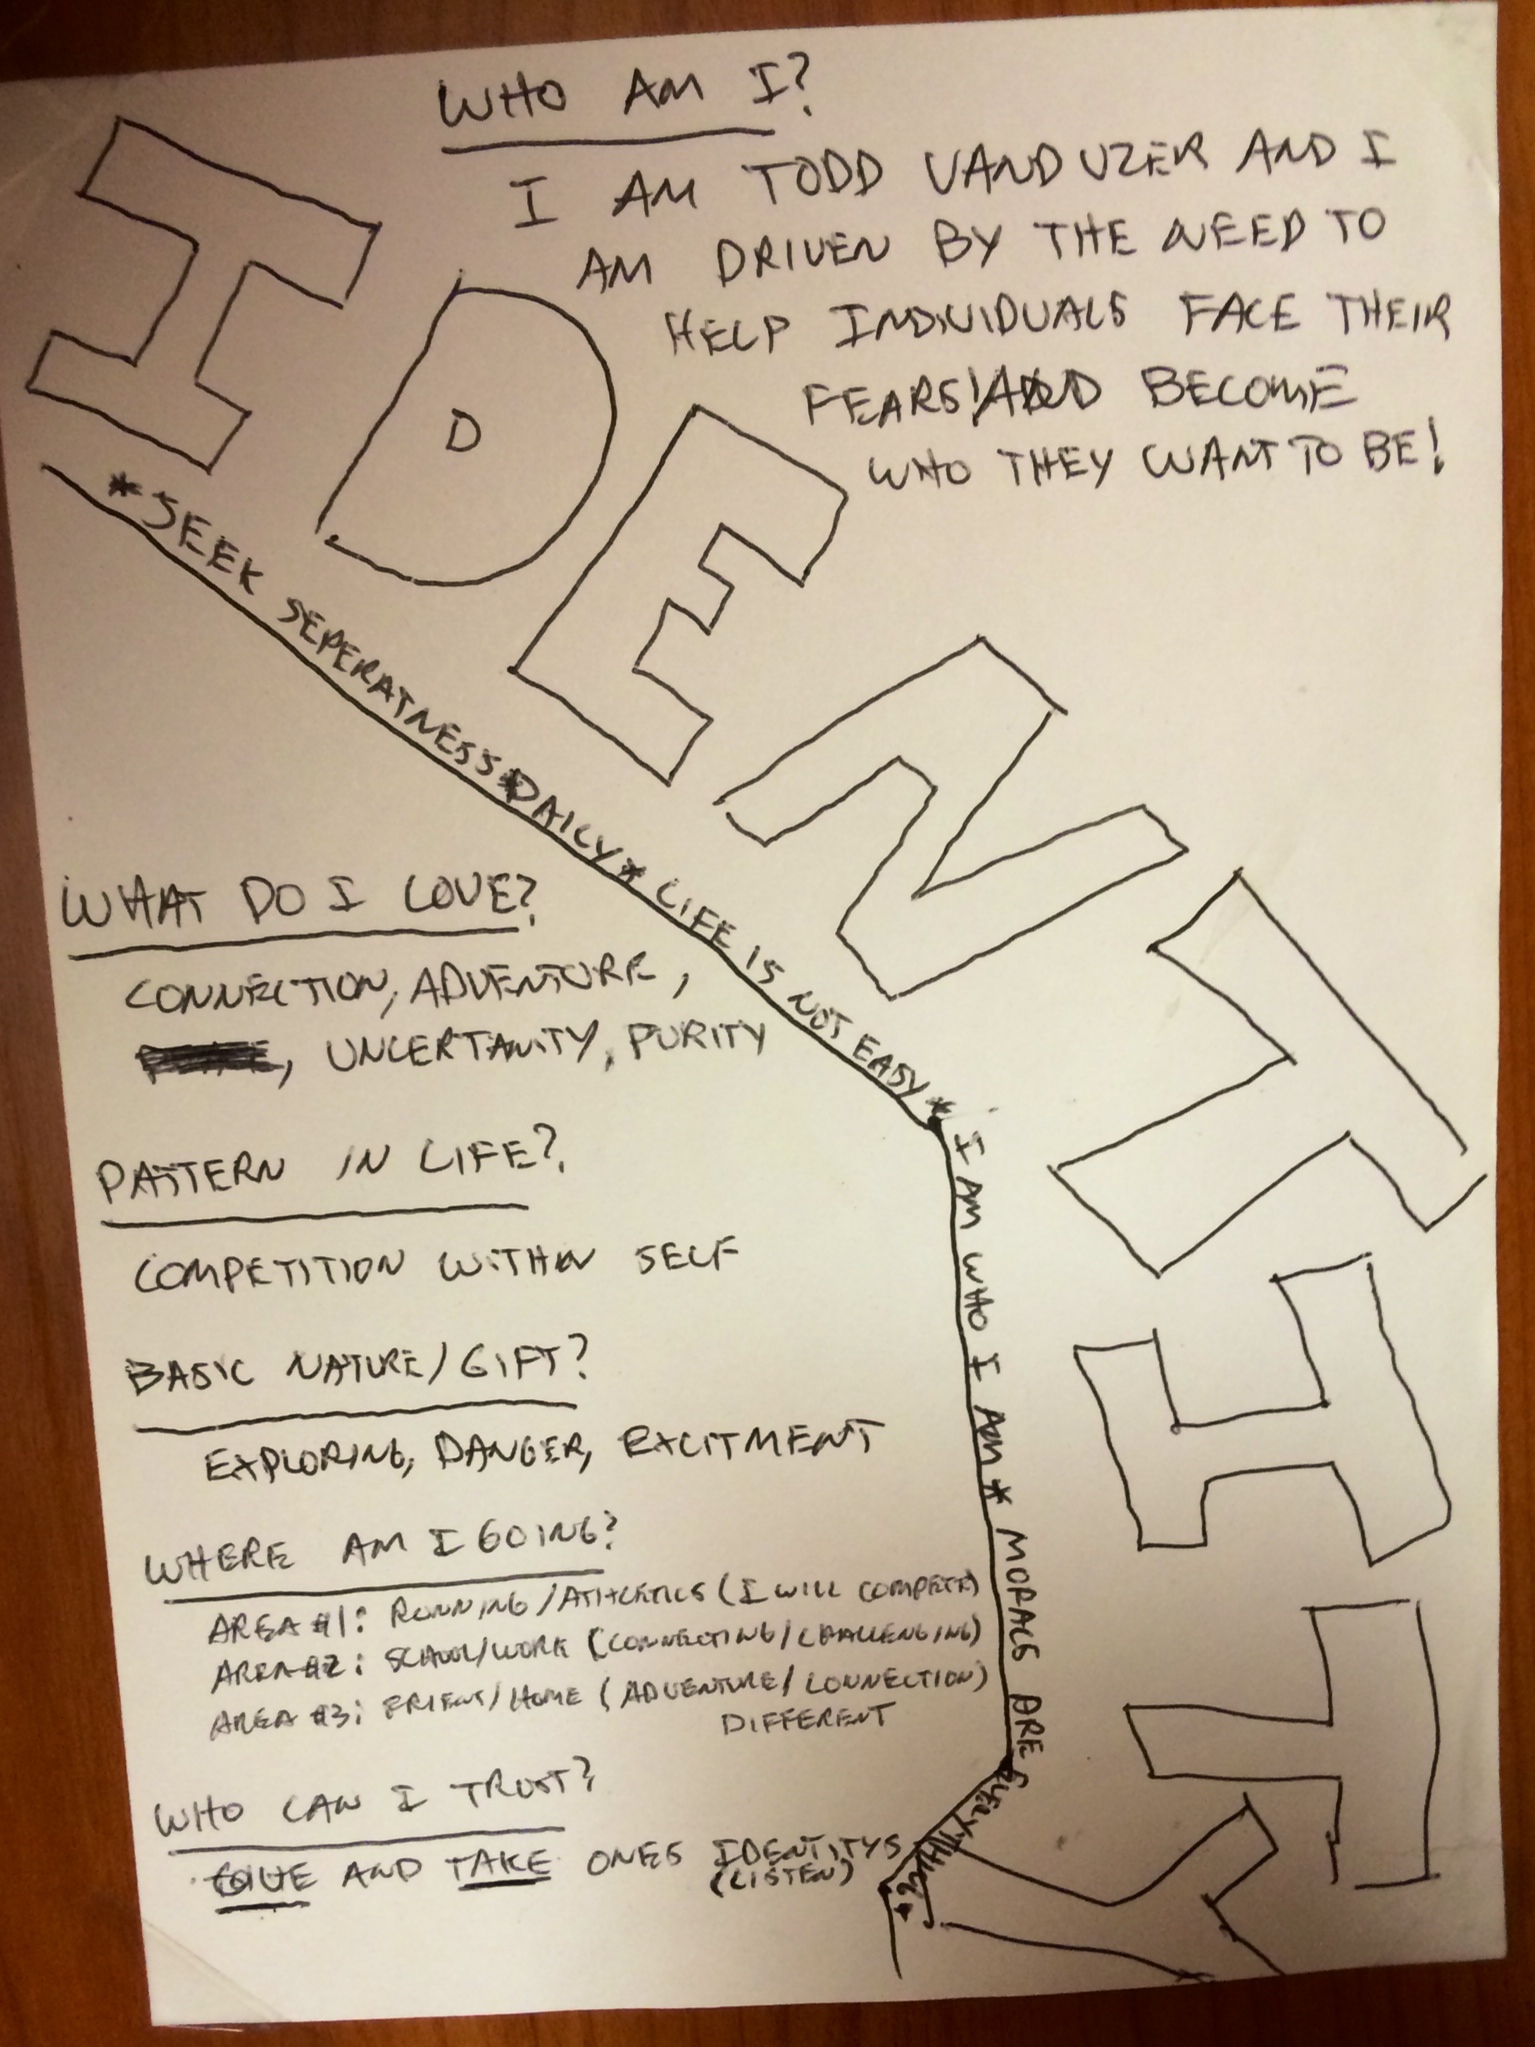 WHO AM I?
I AM TODD VANDUZER AND I
AM DRIVEN BY THE NEED TO
HELP INDIVIDUALS FACE THEIR
FEARS! AND BECOME
WHO THEY WANT TO BE!
IDENTITY
D
*SEEK SEPERATNESS*DAILY* LIFE IS NOT EASY* I AM WHO I AM * MORALS ARE EVERYTHING*
WHAT DO I LOVE?
CONNECTION, ADVENTURE,
, UNCERTANITY, PURITY
PATTERN IN LIFE?
COMPETITION WITHIN SELF
BASIC NATURE/GIFT?
EXPLORING, DANGER, EXCITMENT
WHERE AM I GOING?
AREA #1: RUNNING/ATHLETICS (I WILL COMPETE)
AREA #2: SCHOOL/WORK (CONNECTING/CHALLENGING)
AREA #3: /HOME (ADVENTURE/CONNECTION)
DIFFERENT
WHO CAN I TRUST?
GIVE AND TAKE ONES IDENTITYS
(LISTEN)